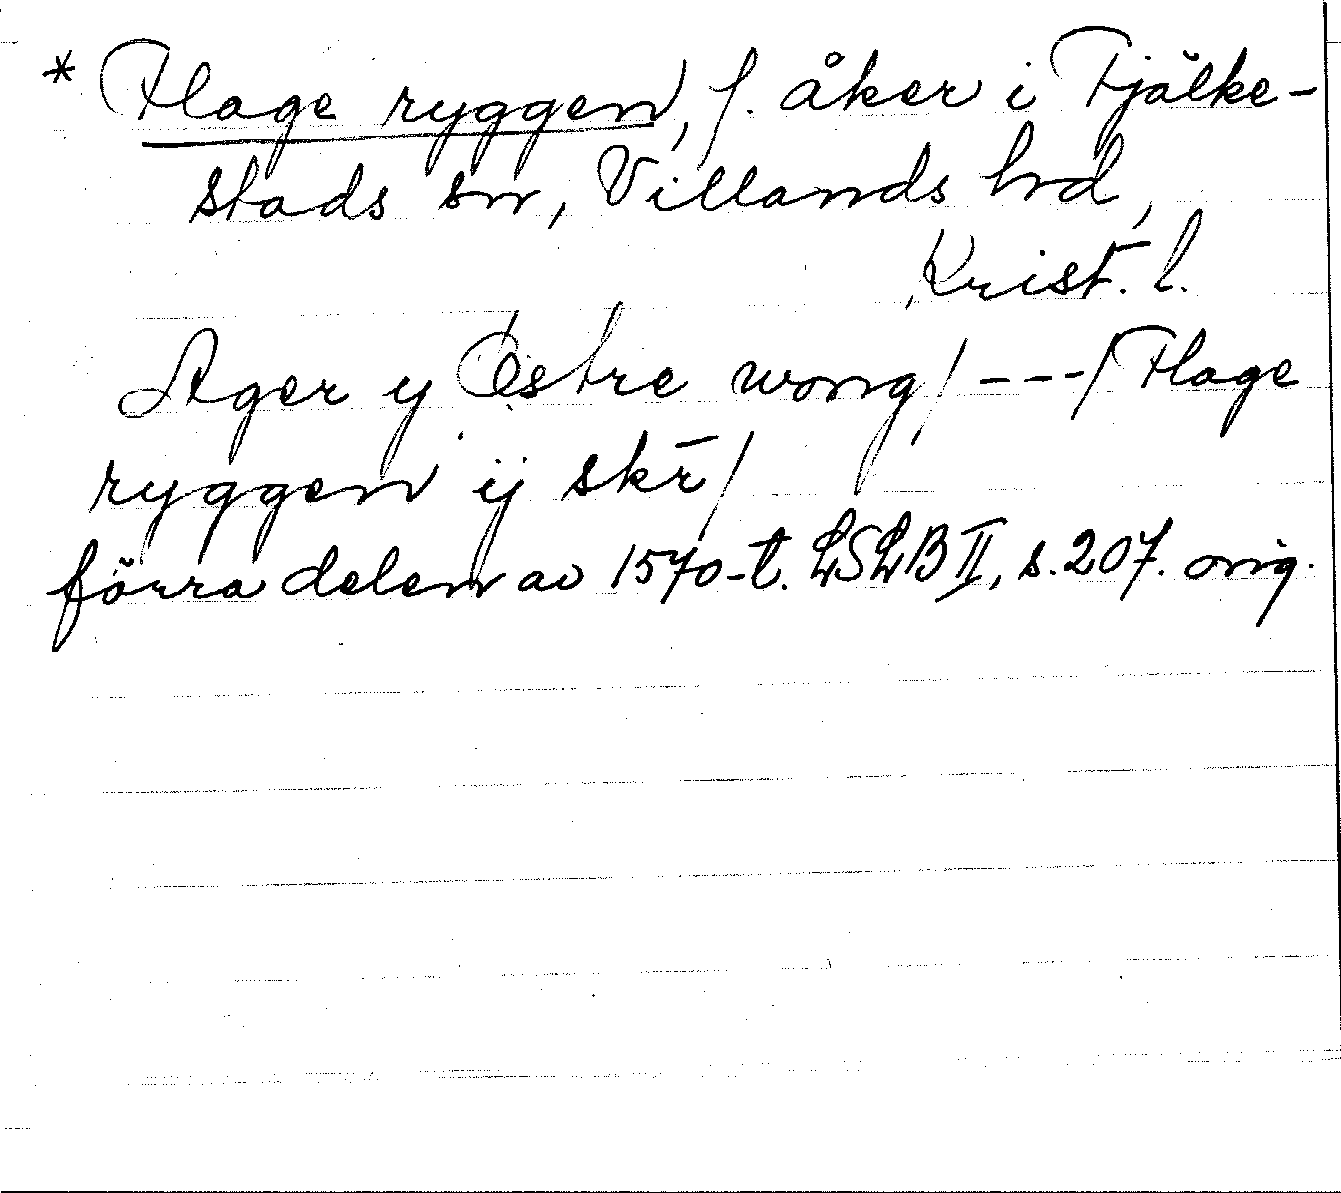 * Flage ryggen, f. åker i Fjälke-
stads sn, Villands hd,
Krist. l.
Ager y Østre wong/ ---/ Flage
ryggen ij skr̄/
förra delen av 1570-t. LSLB II, s. 207. orig.